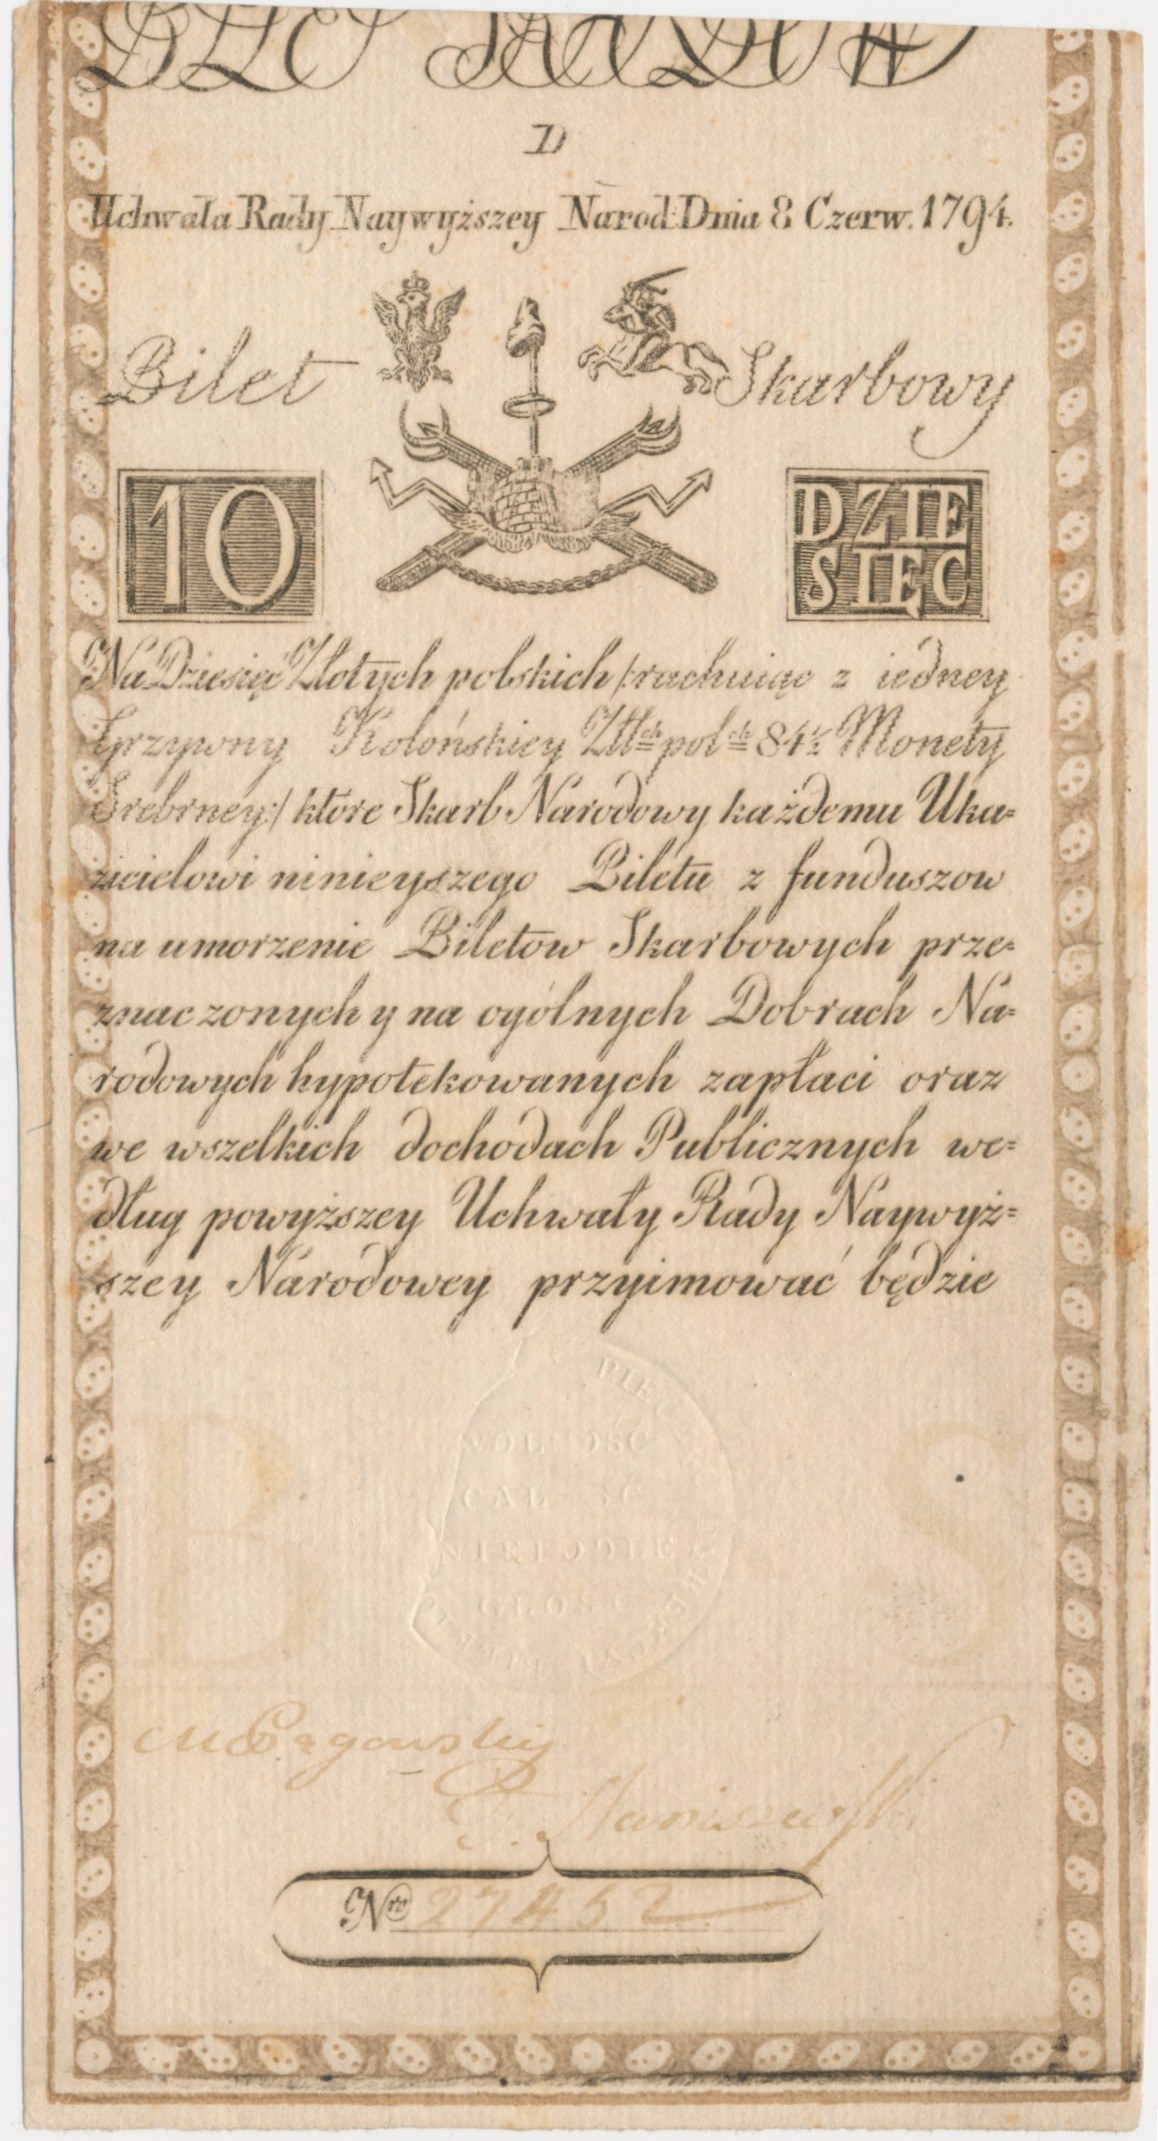 D
Uchwała Rady Naywyższey Narod: Dnia 8 Czerw. 1794.
Bilet Skarbowy
10
DZIE
SIĘC
Na Dziesięć Złotych polskich /:rachuiąc z iedney
Grzywny Kolońskiey Złł:ch pol:ch 84½ Monety
Srebrney:/ które Skarb Narodowy każdemu Uka=
zicielowi ninieyszego Biletu z funduszow
na umorzenie Biletow Skarbowych prze=
znaczonych y na ogólnych Dobrach Na=
rodowych hypotekowanych zapłaci oraz
we wszelkich dochodach Publicznych we=
dług powyższey Uchwały Rady Naywyż=
szey Narodowey przyimować będzie
WOLNOŚĆ
CAŁOŚĆ
NIEPODLE
GŁOŚĆ
B S
M Pągowski
F. Staniszewski
Nro 27452